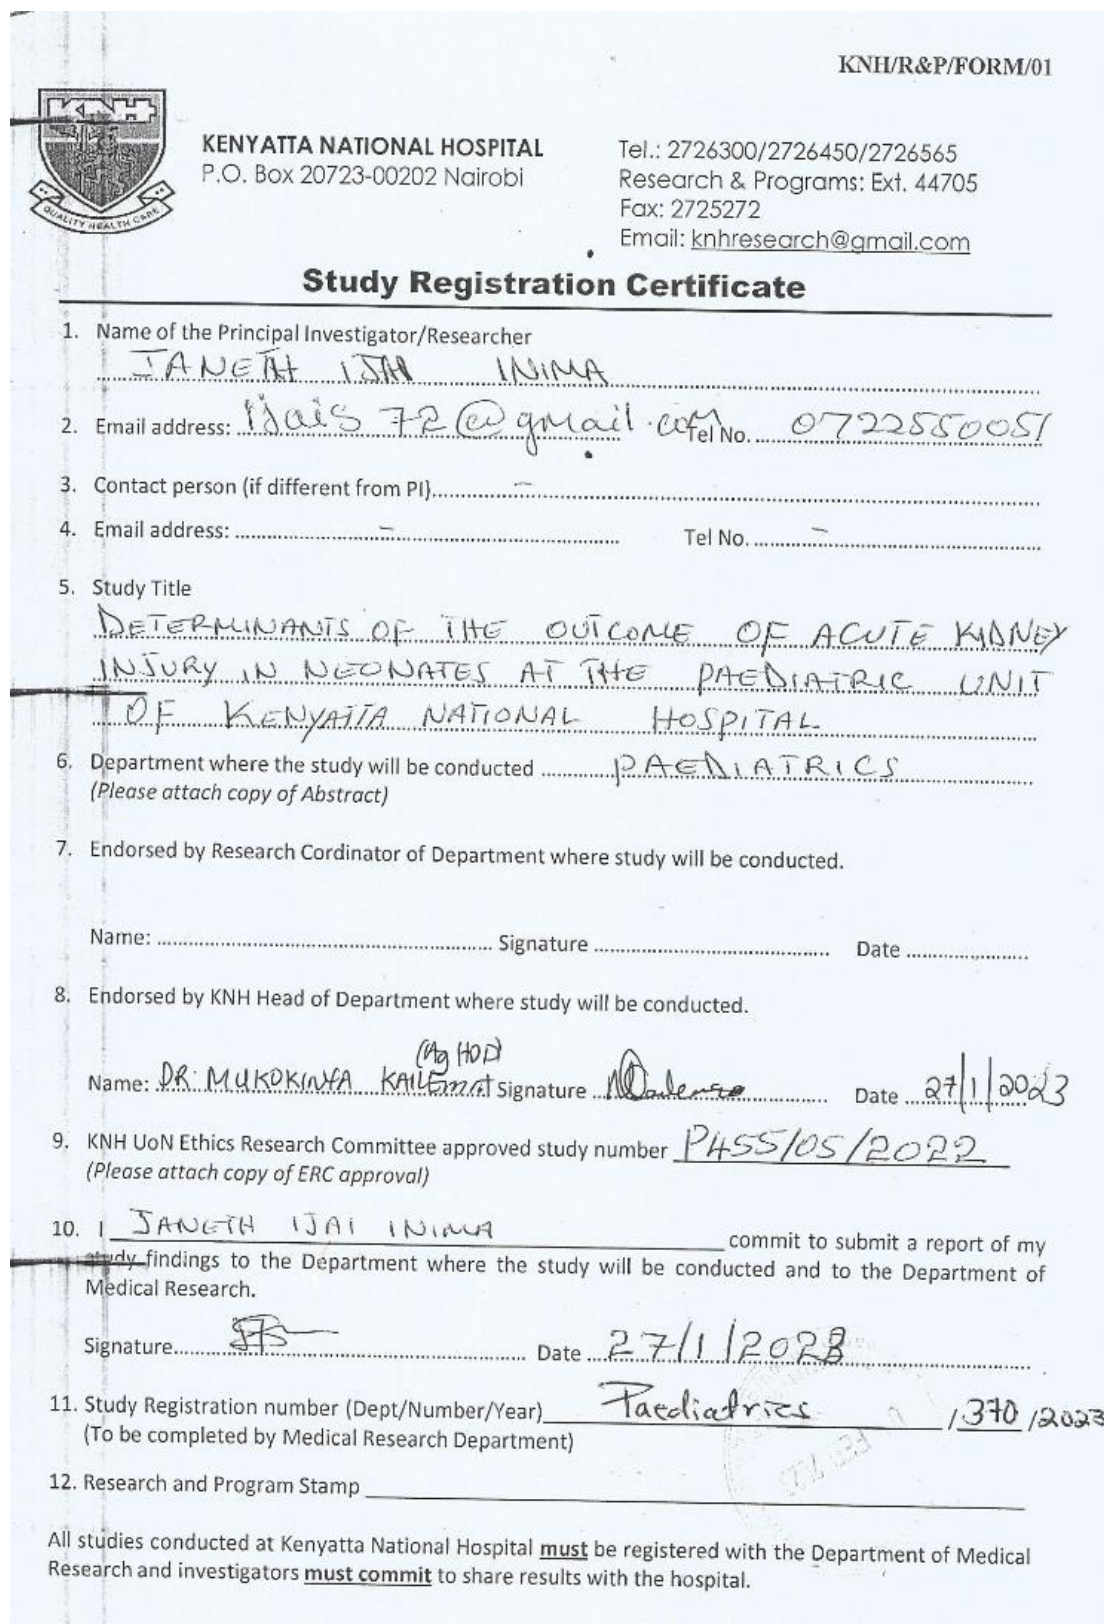 KNH/R&P/FORM/01
KNH
QUALITY HEALTH CARE
KENYATTA NATIONAL HOSPITAL
P.O. Box 20723-00202 Nairobi
Tel.: 2726300/2726450/2726565
Research & Programs: Ext. 44705
Fax: 2725272
Email: knhresearch@gmail.com
Study Registration Certificate
1. Name of the Principal Investigator/Researcher
JANETH IJAI INIMA
2. Email address: ijais72@gmail.com Tel No. 0722550051
3. Contact person (if different from PI) –
4. Email address: – Tel No. –
5. Study Title
DETERMINANTS OF THE OUTCOME OF ACUTE KIDNEY
INJURY IN NEONATES AT THE PAEDIATRIC UNIT
OF KENYATTA NATIONAL HOSPITAL
6. Department where the study will be conducted PAEDIATRICS
(Please attach copy of Abstract)
7. Endorsed by Research Cordinator of Department where study will be conducted.
Name: Signature Date
8. Endorsed by KNH Head of Department where study will be conducted.
(Ag HOD)
Name: DR. Signature Date 27/1/2023
9. KNH UoN Ethics Research Committee approved study number P455/05/2022
(Please attach copy of ERC approval)
10. I JANETH IJAI INIMA commit to submit a report of my
study findings to the Department where the study will be conducted and to the Department of
Medical Research.
Signature Date 27/1/2023
11. Study Registration number (Dept/Number/Year) Paediatrics /370/2023
(To be completed by Medical Research Department)
12. Research and Program Stamp
All studies conducted at Kenyatta National Hospital must be registered with the Department of Medical
Research and investigators must commit to share results with the hospital.